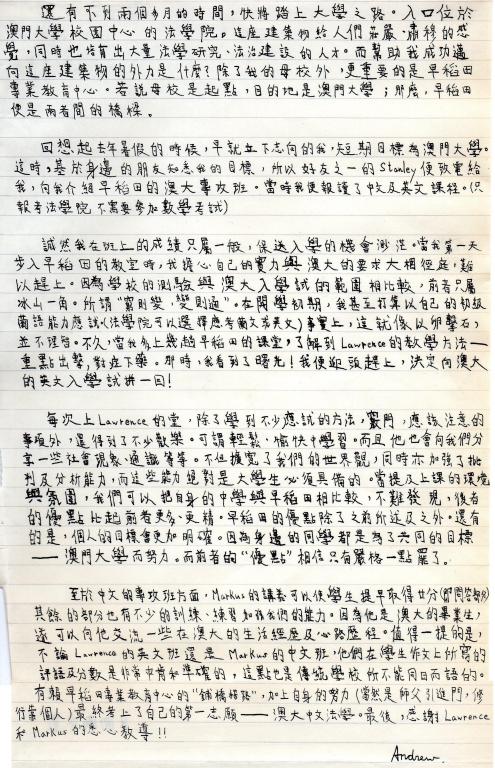 還有不到兩個多月的時間，快將踏上大學之路。入口位於
澳門大學校園中心的法學院。這座建築物給人們莊嚴、肅穆的感
覺，同時也培育出大量法學研究、法治建設的人才。而幫助我成功邁
向這座建築物的外力是什麼？除了我的母校外，更重要的是早稻田
專業教育中心。若說母校是起點，目的地是澳門大學；那麼，早稻田
便是兩者間的橋樑。
回想起去年暑假的時候，早就立下志向的我，短期目標為澳門大學。
這時，基於身邊的朋友知悉我的目標，所以好友之一的Stanley便致電給
我，向我介紹早稻田的澳大專攻班。當時我便報讀了中文及英文課程。(只
報考法學院不需要參加數學考試)
誠然我在班上的成績只屬一般，保送入學的機會渺茫。當我第一天
步入早稻田的教室時，我擔心自己的實力與澳大的要求大相徑庭，難
以趕上。因為學校的測驗與澳大入學試的範圍相比較，前者只屬
冰山一角。所謂"窮則變，變則通"。在開學初期，我甚至打算以自己的初級
葡語能力應試(法學院可以選擇應考葡文或英文)事實上，這就像以卵擊石，
並不理智。不久，當我多上幾趟早稻田的課堂，了解到Lawrence的教學方法——
重點出擊，對症下藥。那時，我看到了曙光！我便迎頭趕上，決定向澳大
的英文入學試拼一回！
每次上Lawrence的堂，除了學到不少應試的方法，竅門，應該注意的
事項外，還得到了不少歡樂。可謂輕鬆、愉快中學習。而且他也會向我們分
享一些社會現象、通識等等。不但擴寬了我們的世界觀，同時亦加強了批
判及分析能力，而這些能力絕對是大學生必須具備的。當提及上課的環境
與氛圍，我們可以把自身的中學與早稻田相比較，不難發現，後者
的優點比起前者更多、更精。早稻田的優點除了之前所述及之外。還有
的是，個人的目標會更加明確。因為身邊的同學都是為了共同的目標
——澳門大學而努力。而前者的"優點"相信只有嚴格一點罷了。
至於中文的專攻班方面，Markus的講義可以使學生提早取得廿分(即問答部份)
其餘的部份也有不少的訓練、練習加強我們的能力。因為他是澳大的畢業生，
還可以向他交流一些在澳大的生活經歷及心路歷程。值得一提的是，
不論Lawrence的英文班還是Markus的中文班，他們在學生作文上所寫的
評語及分數是非常中肯和準確的，這點也是傳統學校所不能同日而語的。
有賴早稻田專業教育中心的"鋪橋搭路"，加上自身的努力(當然是師父引進門，修
行靠個人)最終考上了自己的第一志願——澳大中文法學。最後，感謝Lawrence
和Markus的悉心教導！！
Andrew.